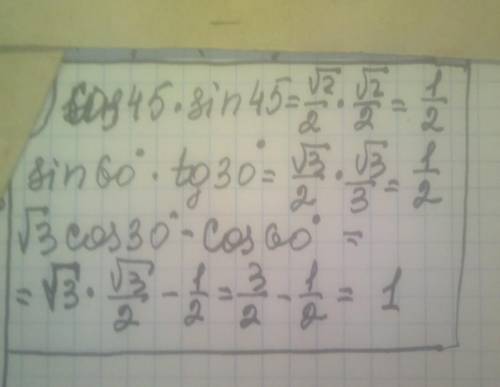 cos45·sin45=√2/2·√2/2=1/2
sin60°·tg30°=√3/2·√3/3=1/2
√3cos30°-cos60°=
=√3·√3/2-1/2=3/2-1/2=1